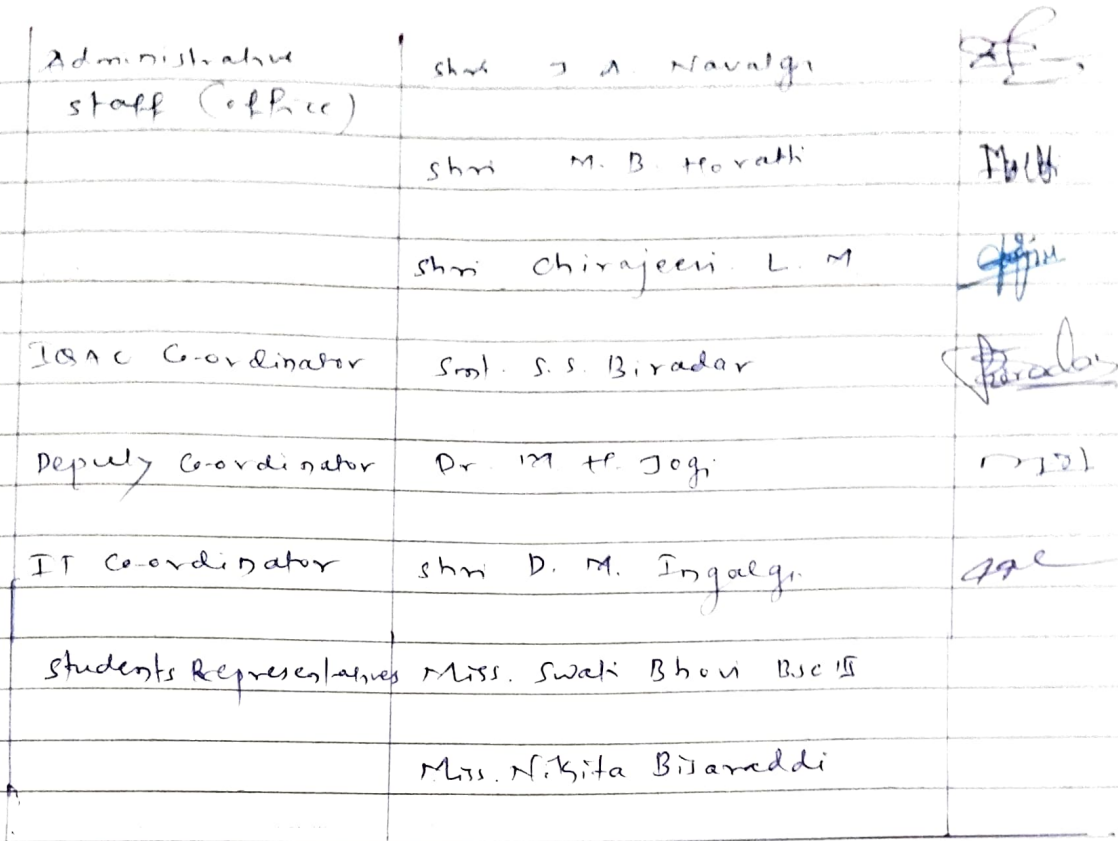 Administrative Shri J A. Navalgi
staff (office)
Shri M. B. Horatti
Shri Chirajeevi. L. M
IQAC Co-ordinator Smt. S. S. Biradar
Biradar
Deputy Co-ordinator Dr. M H. Jogi
IT Co-ordinator Shri D. M. Ingalgi
Students Representatives Miss. Swati Bhovi BSc II
Miss. Nikita Bisareddi